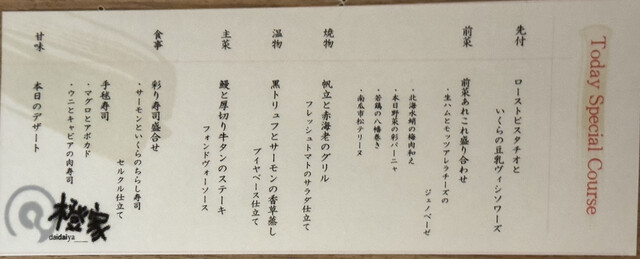 Today Special Course
先付
ローストピスタチオと
いくらの豆乳ヴィシソワーズ
前菜
前菜あれこれ盛り合わせ
・生ハムとモッツアレラチーズの
ジェノベーゼ
・北海水蛸の梅肉和え
・本日野菜の彩バーニャ
・若鶏の八幡巻き
・南瓜市松テリーヌ
焼物
帆立と赤海老のグリル
フレッシュトマトのサラダ仕立て
温物
黒トリュフとサーモンの香草蒸し
ブイヤベース仕立て
主菜
鰻と厚切り牛タンのステーキ
フォンドヴォーソース
食事
彩り寿司盛合せ
・サーモンといくらのちらし寿司
セルクル仕立て
手毬寿司
・マグロとアボカド
・ウニとキャビアの肉寿司
甘味
本日のデザート
橙家
daidaiya